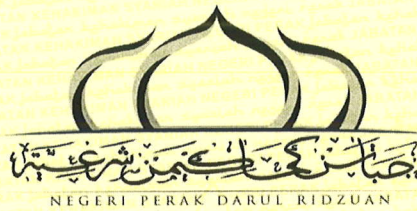 جباتن كحاكيمن شرعية
NEGERI PERAK DARUL RIDZUAN